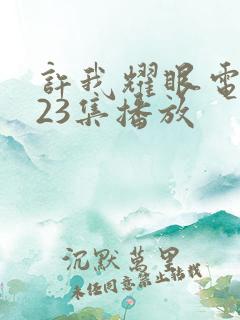 許我耀眼電
23集播放
沉默萬里
未经同意禁止转载